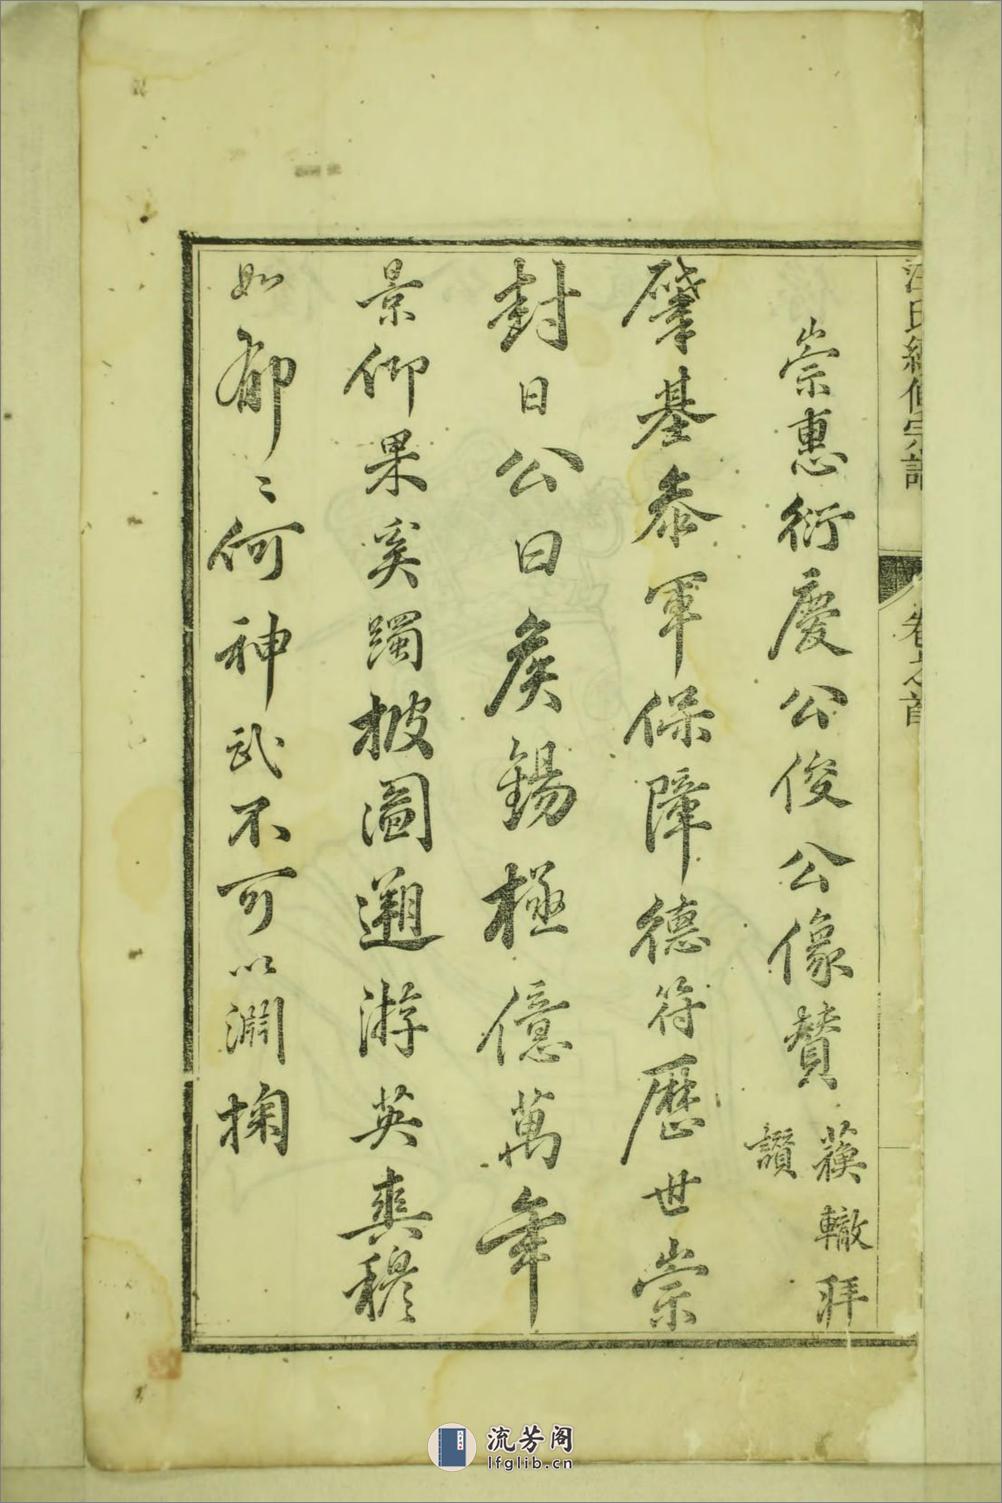 汪氏統修宗譜
卷之首
崇惠衍慶公俊公像贊
蘇轍拜
讚
肇基泰軍保障德符歷世崇
封日公日侯錫極億萬年
景仰果奚躅披圖遡游英爽穆
如郁〻何神武不可以淵掬
流芳阁
lfglib.cn